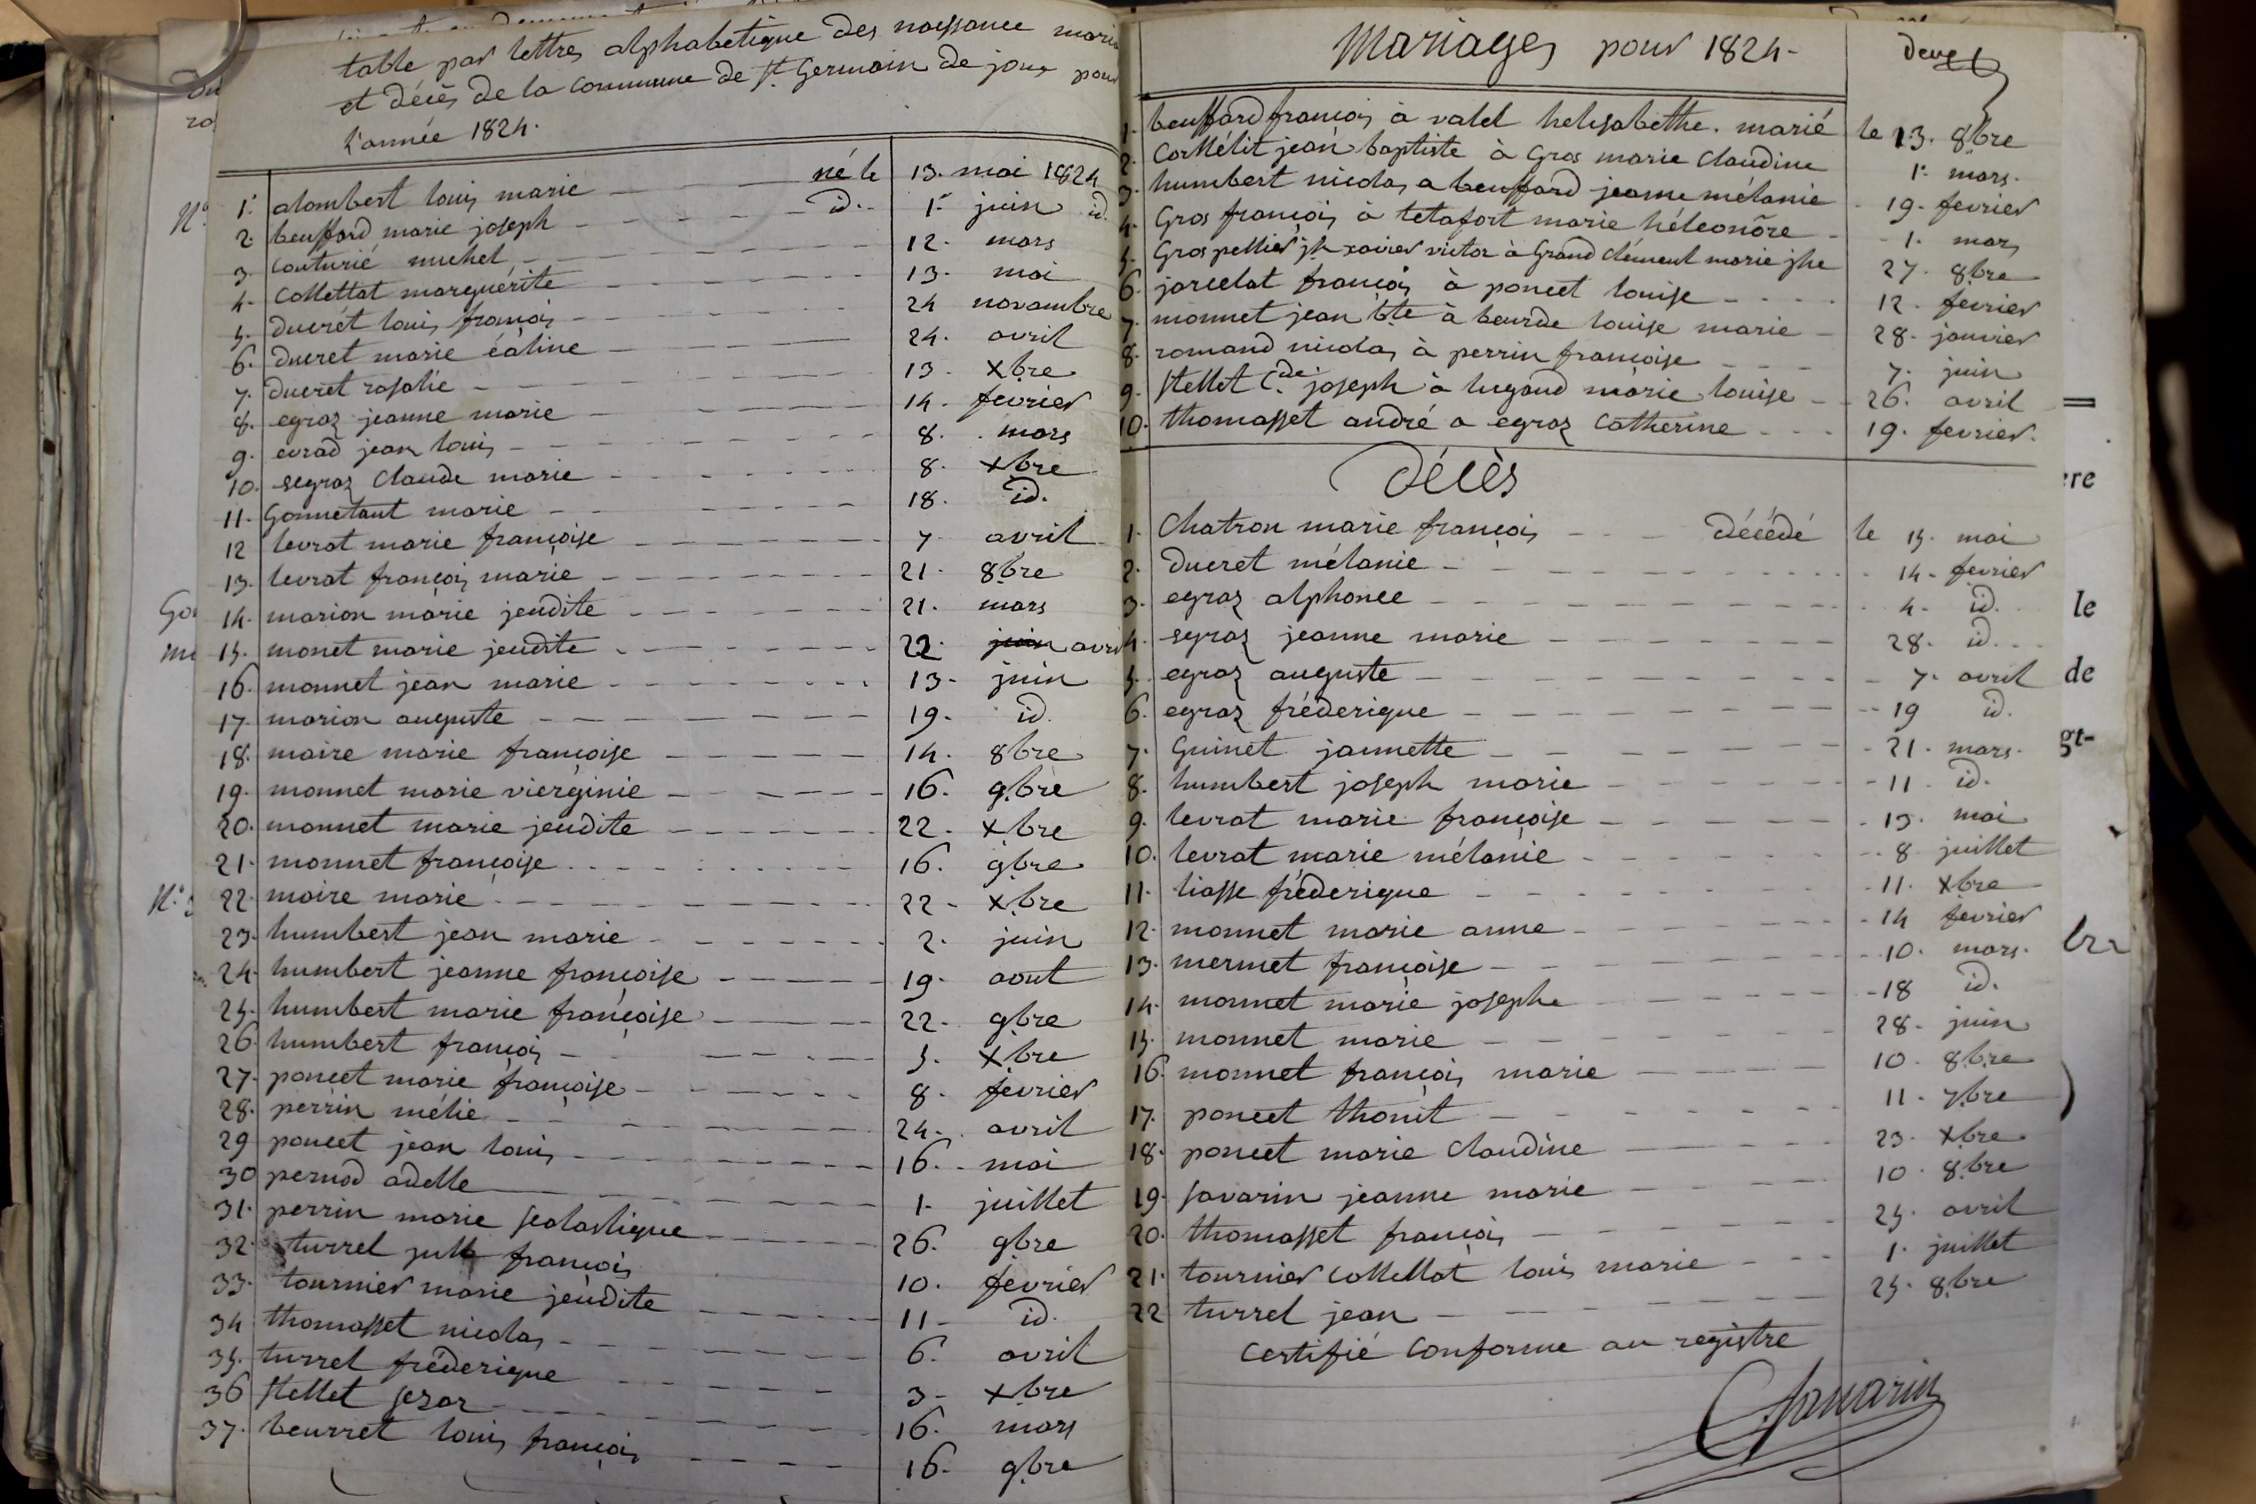 table par lettres alphabétique des naissance
et décès de la commune de St Germain de joux pour
l'année 1824.
1. alombert louis marie né le 13. mai 1824
2. beufford marie joseph id. 1. juin id
3. couturié michel 12. mars
4. Collettat marguerite 13. mai
5. ducrét louis françois 24 novambre
6. ducret marie éaline 24. avril
7. ducret rosalie 13. xbre
8. egraz jeanne marie 14. fevrier
9. evrad jean louis 8. mars
10. segraz Claude marie 8. xbre
11. Gonnetant marie 18. id.
12 levrat marie françoise 7 avril
13. levrat françois marie 21. 8bre
14. marion marie jeudite 21. mars
15. monet marie jeudite 22. juin avri
16. monnet jean marie 13. juin
17. marion auguste 19. id.
18. maire marie françoise 14. 8bre
19. monnet marie vierginie 16. 9bre
20. monnet marie jeudite 22. xbre
21. monnet françoise 16. 9bre
22. maire marie 22 xbre
23. humbert jean marie 2. juin
24. humbert jeanne françoise 19. aout
25. humbert marie françoise 22. 9bre
26. humbert françois 5. xbre
27. poncet marie françoise 8. fevrier
28. perrin mélie 24. avril
29 poncet jean louis 16. mai
30 pernod adelle 1. juillet
31. perrin marie scolastique 26. 9bre
32. turrel françois 10. fevrier
33. tournier marie jeudite 11 id.
34 thomasset nicolas 6. avril
35. turrel fréderique 3 xbre
36 stellet sezar 16. mars
37. beurret louis françois 16. 9bre
Mariages pour 1824
1. beuffard françois à valet helisabethe. marié le 13. 8bre
2. Collélit jean baptiste à Gros marie Claudine 1. mars.
3. humbert nicolas a beuffard jeanne mélanie 19. fevrier
4. Gros françois à tetafort marie héleonôre 1. mars
5. Gros pellier jh xavier victor à Grand Clément marie jhe 27. 8bre
6. jarcelat françois à poncet louise 12. février
7. monnet jean bte à beurde louise marie 28. janvier
8. romand nicolas à perrin françoise 7. juin
9. stellet Cde joseph à lugand marie louise 26. avril
10. thomasset andré a egraz Catherine 19. fevrier.
Décès
1. Chatron marie françois décédé le 15. mai
2. Ducret mélanie 14. fevrier
3. egraz alphonce 4. id.
4. segraz jeanne marie 28. id.
5. egraz auguste 7. avril
6. egraz fréderique 19 id.
7. Guinet jannette 21. mars.
8. humbert joseph marie 11. id.
9. levrat marie françoise 13. mai
10. levrat marie mélanie 8 juillet
11. liasse fréderique 11. xbre
12. monnet marie anne 14 fevrier
13. mermet françoise 10. mars.
14. monnet marie josephe 18 id.
15. monnet marie 28. juin
16. monnet françois marie 10. 8bre
17. poncet 11. 7bre
18. poncet marie Claudine 23. xbre
19. savarin jeanne marie 10. 8bre
20. thomasset françois 25. avril
21. tournier Collellat louis marie 1. juillet
22 turrel jean 25. 8bre
Certifié Conforme au registre
Savarin